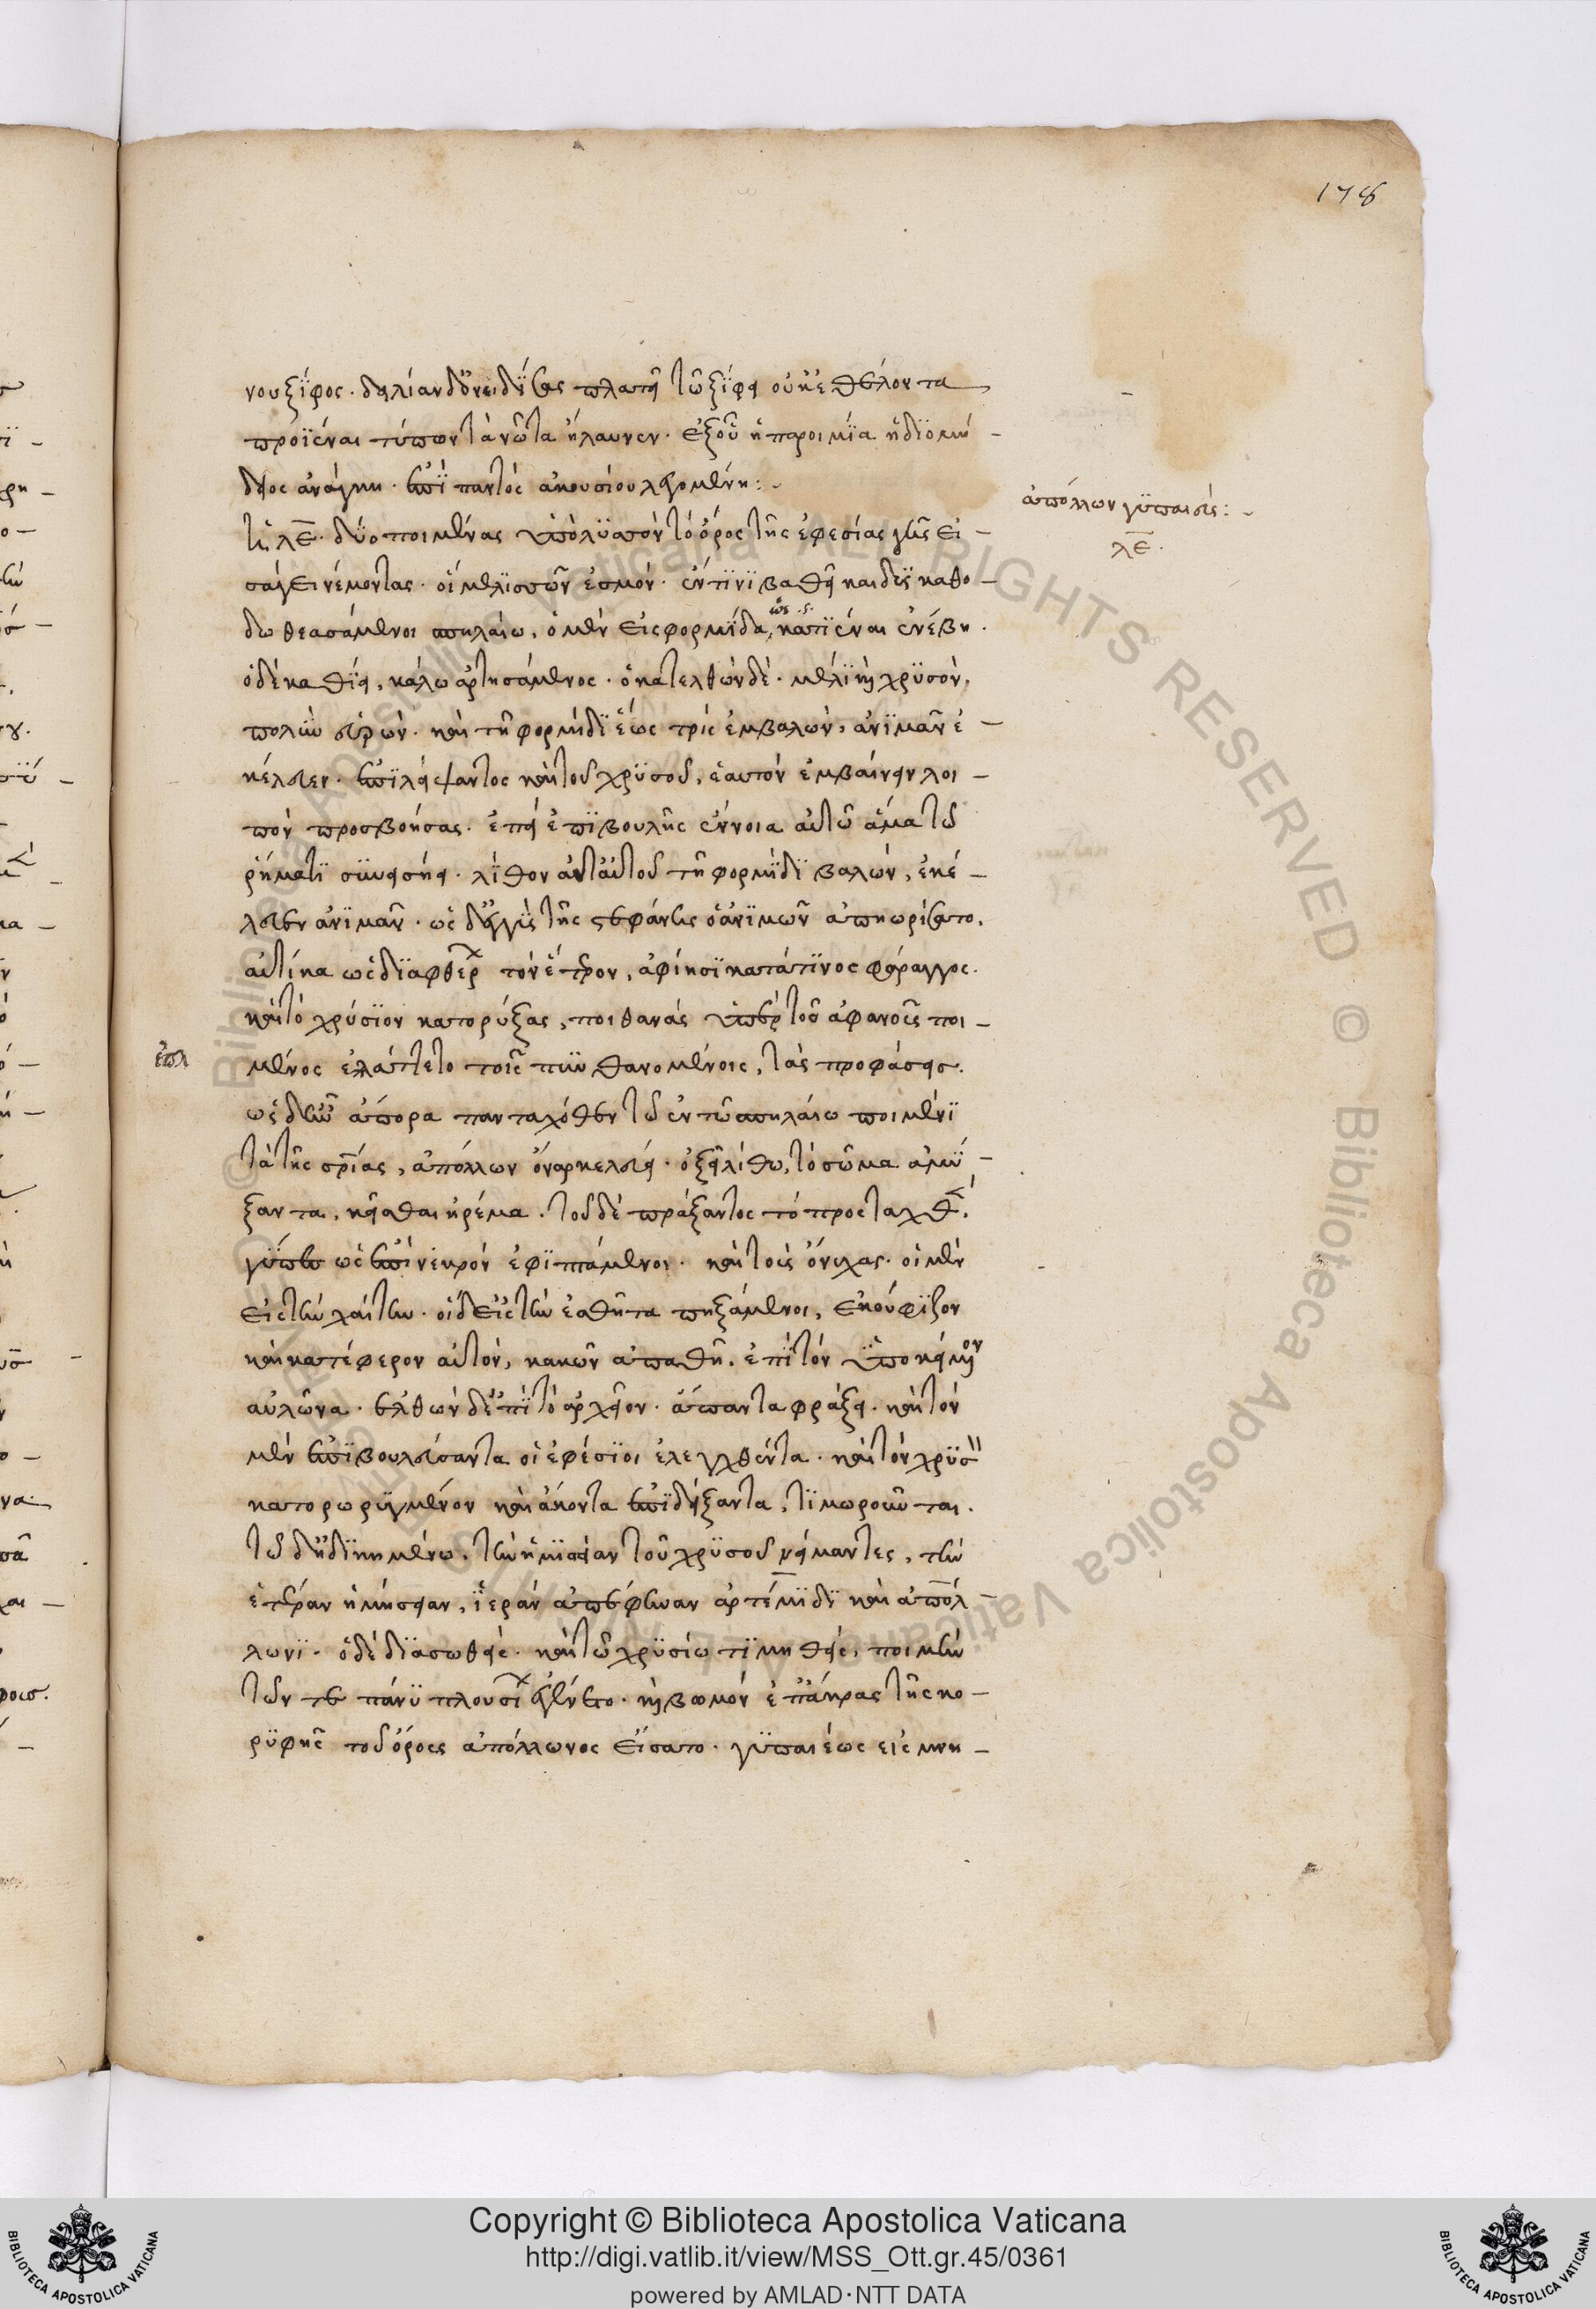 178
νου ξίφος· δειλίαν δ' ὀνειδίσας πλατεῖ τῶ ξίφει οὐκ ἐθέλοντα
προϊέναι τύπτων τὰ νῶτα ἤλαυνεν· ἐξ οὗ ἡ παροιμία ἡ διομή-
δειος ἀνάγκη· ἐπὶ παντὸς ἀκουσίου λεγομένη:-
ἀπόλλων γυπαιεύς:-
λε.
ἡ λε. δύο ποιμένας ὑπὸ λυσσὸν τὸ ὄρος τῆς ἐφεσίας γῆς εἰ-
σάγει νέμοντας· οἳ μελισσῶν ἐσμὸν· ἔν τινι βαθεῖ καὶ δυσκαθό-
δω θεασάμενοι σπηλαίω, ὁ μὲν εἰς φορμίδα, κατιέναι ἐνέβη·
ὁ δὲ καθίει, κάλω ἀρτησάμενος· ὁ κατελθὼν δὲ· μέλι καὶ χρυσὸν,
πολὺν εὑρὼν· καὶ τῆ φορμίδι ἕως τρὶς ἐμβαλὼν, ἀνιμᾶν ἐ-
κέλευεν· ἐπιλείψαντος καὶ τοῦ χρυσοῦ, ἑαυτὸν ἐμβαίνειν λοι-
πὸν προσβοήσας· ἐπεὶ ἐπιβουλῆς ἔννοια αὐτῶ ἅμα τῶ
ῥήματι συνεισήει· λίθον ἀντ' αὐτοῦ τῆ φορμίδι βαλὼν, ἐκέ-
λευεν ἀνιμᾶν· ὡς δ' ἐγγὺς τῆς στεφάνης ὁ ἀνιμῶν ἀπηωρίσατο,
αὐτίκα ὡς διαφθερ τὸν ἕτερον, ἀφίησι κατά τινος φάραγγος·
καὶ τὸ χρυσίον κατορύξας, πιθανὰς ὑπὲρ τοῦ ἀφανοῦς ποι-
μένος ἐπλάττετο τοῖς πυνθανομένοις, τὰς προφάσεις·
ἐπλ
ὡς δ' ἦν ἄπορα πανταχόθεν τῶ ἐν τῶ σπηλαίω ποιμένι
τὰ τῆς σωτηρίας, ἀπόλλων ὄναρ κελεύει· ὀξεῖ λίθω, τὸ σῶμα ἀμύ-
ξαντα, κεῖσθαι ἠρέμα· τοῦ δὲ πράξαντος τὸ προσταχθέν,
γῦπες ὡς ἐπὶ νεκρὸν ἐφιπτάμενοι· καὶ τοὺς ὄνυχας· οἱ μὲν
εἰς τὴν χαίτην· οἱ δ' εἰς τὴν ἐσθῆτα πηξάμενοι, ἐκούφιζον
καὶ κατέφερον αὐτὸν, κακῶν ἀπαθῆ, ἐπὶ τὸν ὑποκείμενον
αὐλῶνα· ἐλθὼν δ' ἐπὶ τὸ ἀρχεῖον· ἅπαντα φράζει· καὶ τὸν
μὲν ἐπιβουλεύσαντα οἱ ἐφέσιοι ἐλεγχθέντα· καὶ τὸν χρυσ
κατορωρυγμένον καὶ ἄκοντα ἐπιδείξαντα, τιμωροῦνται·
τῶ δ' ἠδικημένω, τὴν ἡμίσειαν τοῦ χρυσοῦ νείμαντες, τὴν
ἑτέραν ἡμίσειαν, ἱερὰν ἀπέφηναν ἀρτέμιδι καὶ ἀπόλ-
λωνι· ὁ δὲ διασωθεὶς· καὶ τῶ χρυσίω τιμηθεὶς, ποιμὴν
τῶν τε πάνυ πλουσι ἐγένετο· καὶ βωμὸν ἐπ' ἄκρας τῆς κο-
ρυφῆς τοῦ ὄρους ἀπόλλωνος εἵσατο· γυπαιέως εἰς μνη-
Copyright © Biblioteca Apostolica Vaticana
http://digi.vatlib.it/view/MSS_Ott.gr.45/0361
powered by AMLAD·NTT DATA